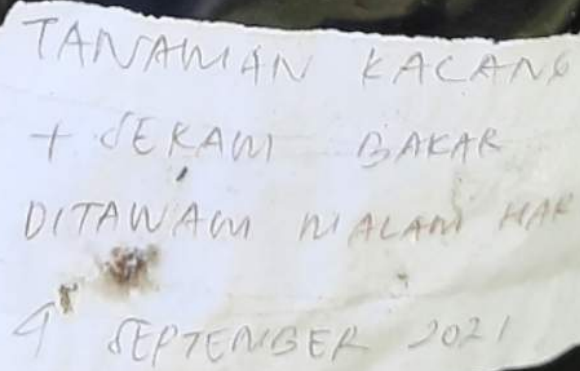 TANAMAN KACANG
+ SEKAM BAKAR
DITANAM MALAM HAR
4 SEPTEMBER 2021